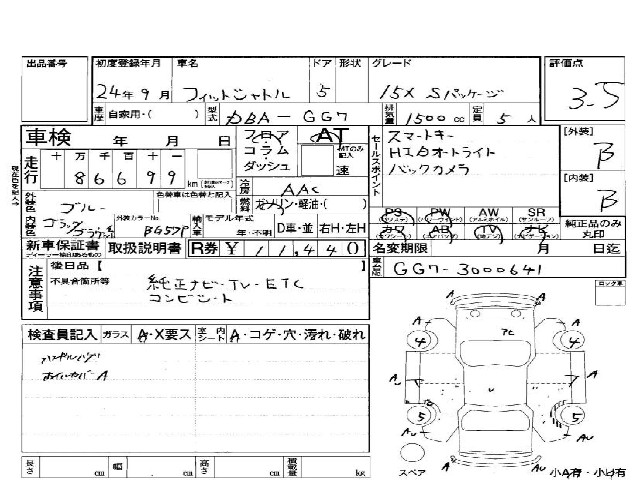 出品番号 初度登録年月 車名 ドア 形状 グレード 評価点
24年9月 フィットシャトル 5 15X Sパッケージ 3.5
車歴 自家用・( ) 型式 DBA-GG7 排気量 1500cc 定員 5人
車検 年 月 日 フロア コラム ダッシュ AT MTのみ記入 速
セールスポイント スマートキー
HIDオートライト
バックカメラ
[外装] B
[内装] B
走行 十万千百十 86699 km
冷房 AAC
外装色 ブルー 色替車は色替と記入 燃料 ガソリン・軽油・( )
内装色 ブラック 外装カラーNo. BG57P 輸入車 モデル年式 年・不明 D車・並 右H・左H
PS PW AW SR
カワ AB TV ナビ
純正品のみ丸印
新車保証書 取扱説明書 R券 ¥11,440 名変期限 月 日迄
車台No. GG7-3000641
注意事項 後日品【 】
不具合箇所等 純正ナビ・TV・ETC
コンビシート
ロック車
検査員記入 ガラス A・X要ス 室内シート A・コゲ・穴・汚れ・破れ
A
長さ cm 幅 cm 高さ cm 積載量 kg
A A A A
4 4
5 5
A A
7
AU AU
A AU
スペア 小A有・小U有